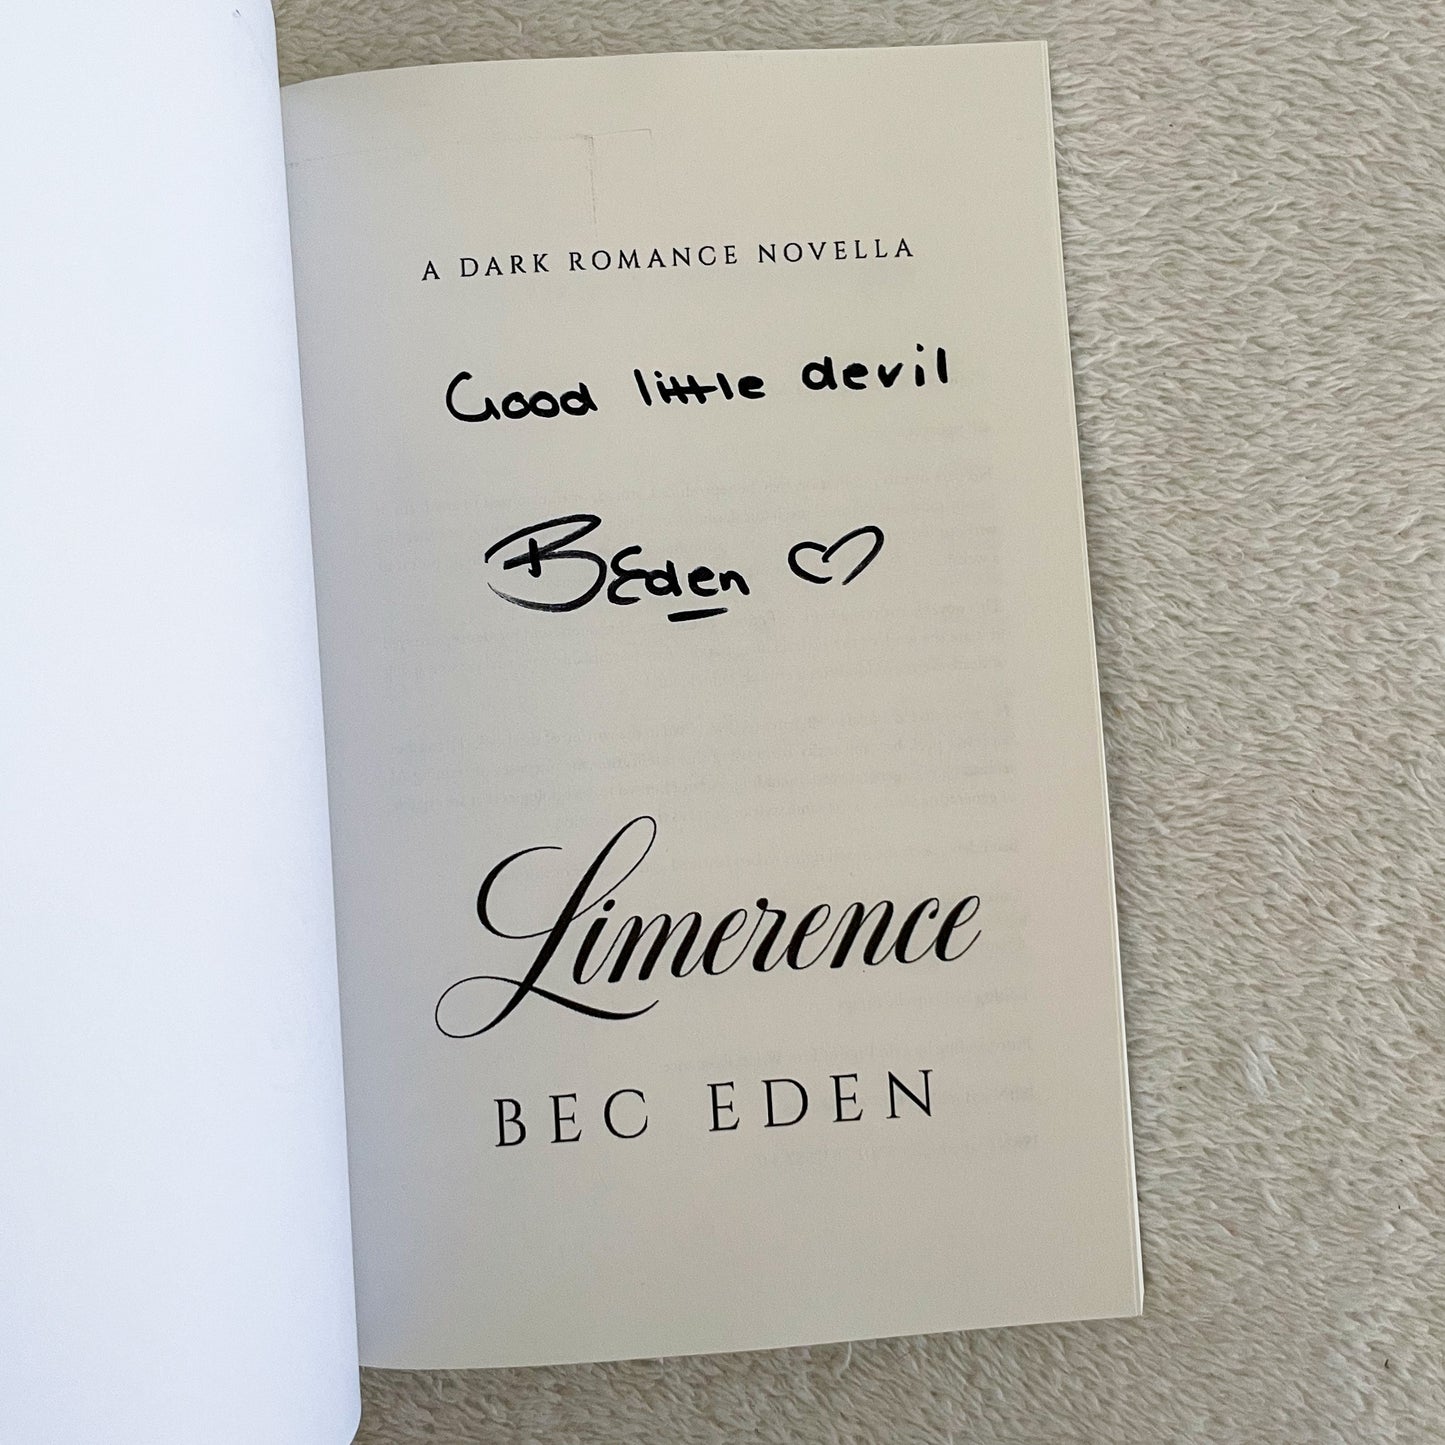 A DARK ROMANCE NOVELLA
Good little devil
B Eden
Limerence
BEC EDEN